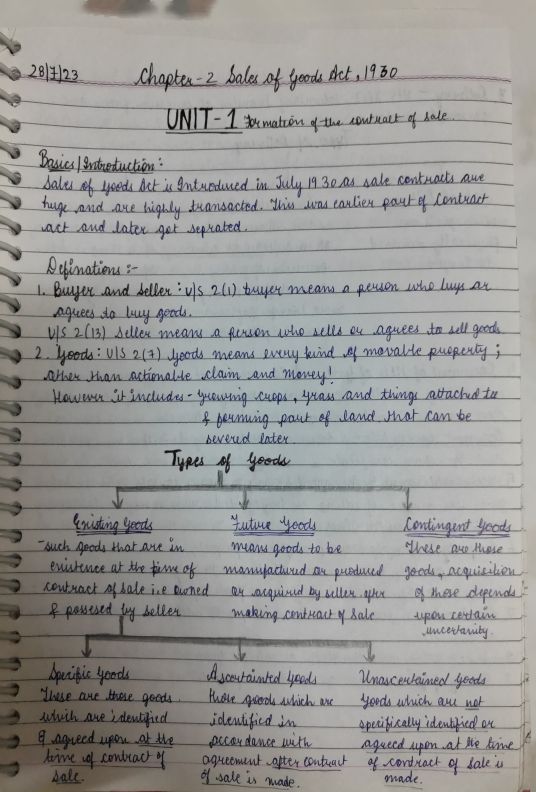 28/7/23 Chapter-2 Sales of Goods Act, 1930
UNIT-1 Formation of the contract of sale.
Basics/Introduction:
Sales of Goods Act is Introduced in July 1930 as sale contracts are
huge and are highly transacted. This was earlier part of Contract
act and later got seprated.
Definations:-
1. Buyer and Seller: U/S 2(1) buyer means a person who buys or
agrees to buy goods.
U/S 2(13) Seller means a person who sells or agrees to sell goods
2. Goods: U/S 2(7) Goods means every kind of movable property;
other than actionable claim and money!
However it includes - Growing crops, grass and things attached to
& forming part of land that can be
severed later
Types of Goods
Existing Goods
-such goods that are in
existence at the time of
contract of sale i.e owned
& possesed by seller
Future Goods
means goods to be
manufactured or produced
or acquired by seller after
making contract of sale
Contingent Goods
These are those
goods, acquisition
of those depends
upon certain
uncertainity.
Specific Goods
These are those goods
which are identified
& agreed upon at the
time of contract of
sale.
Ascertained Goods
those goods which are
identified in
accordance with
agreement after contract
of sale is made.
Unascertained Goods
Goods which are not
specifically identified or
agreed upon at the time
of contract of sale is
made.